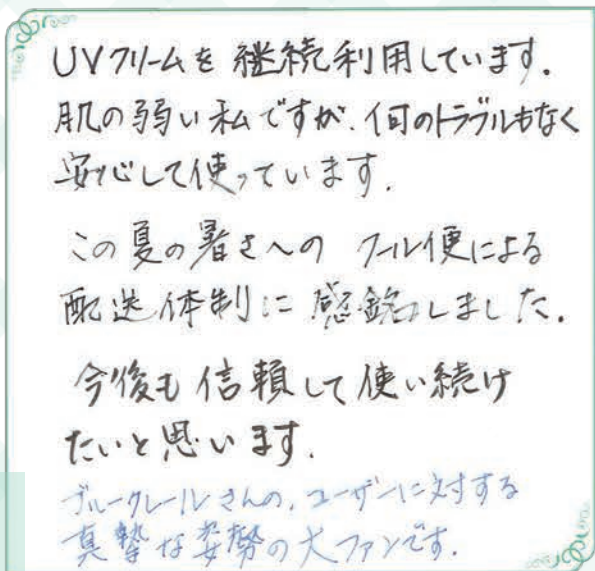 UVクリームを 継続利用しています.
肌の弱い私ですが.何のトラブルもなく
安心して使っています.
この夏の暑さへの クール便による
配送体制に 感銘しました.
今後も信頼して使い続け
たいと思います.
ブルークレールさんの,ユーザーに対する
真摯な姿勢の大ファンです.